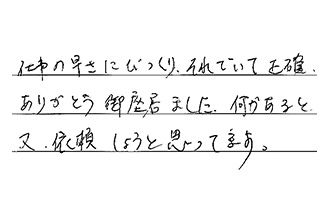 仕事の早さにびっくり、それでいて正確、
ありがとう御座居ました、何かあると
又、依頼しようと思ってます。